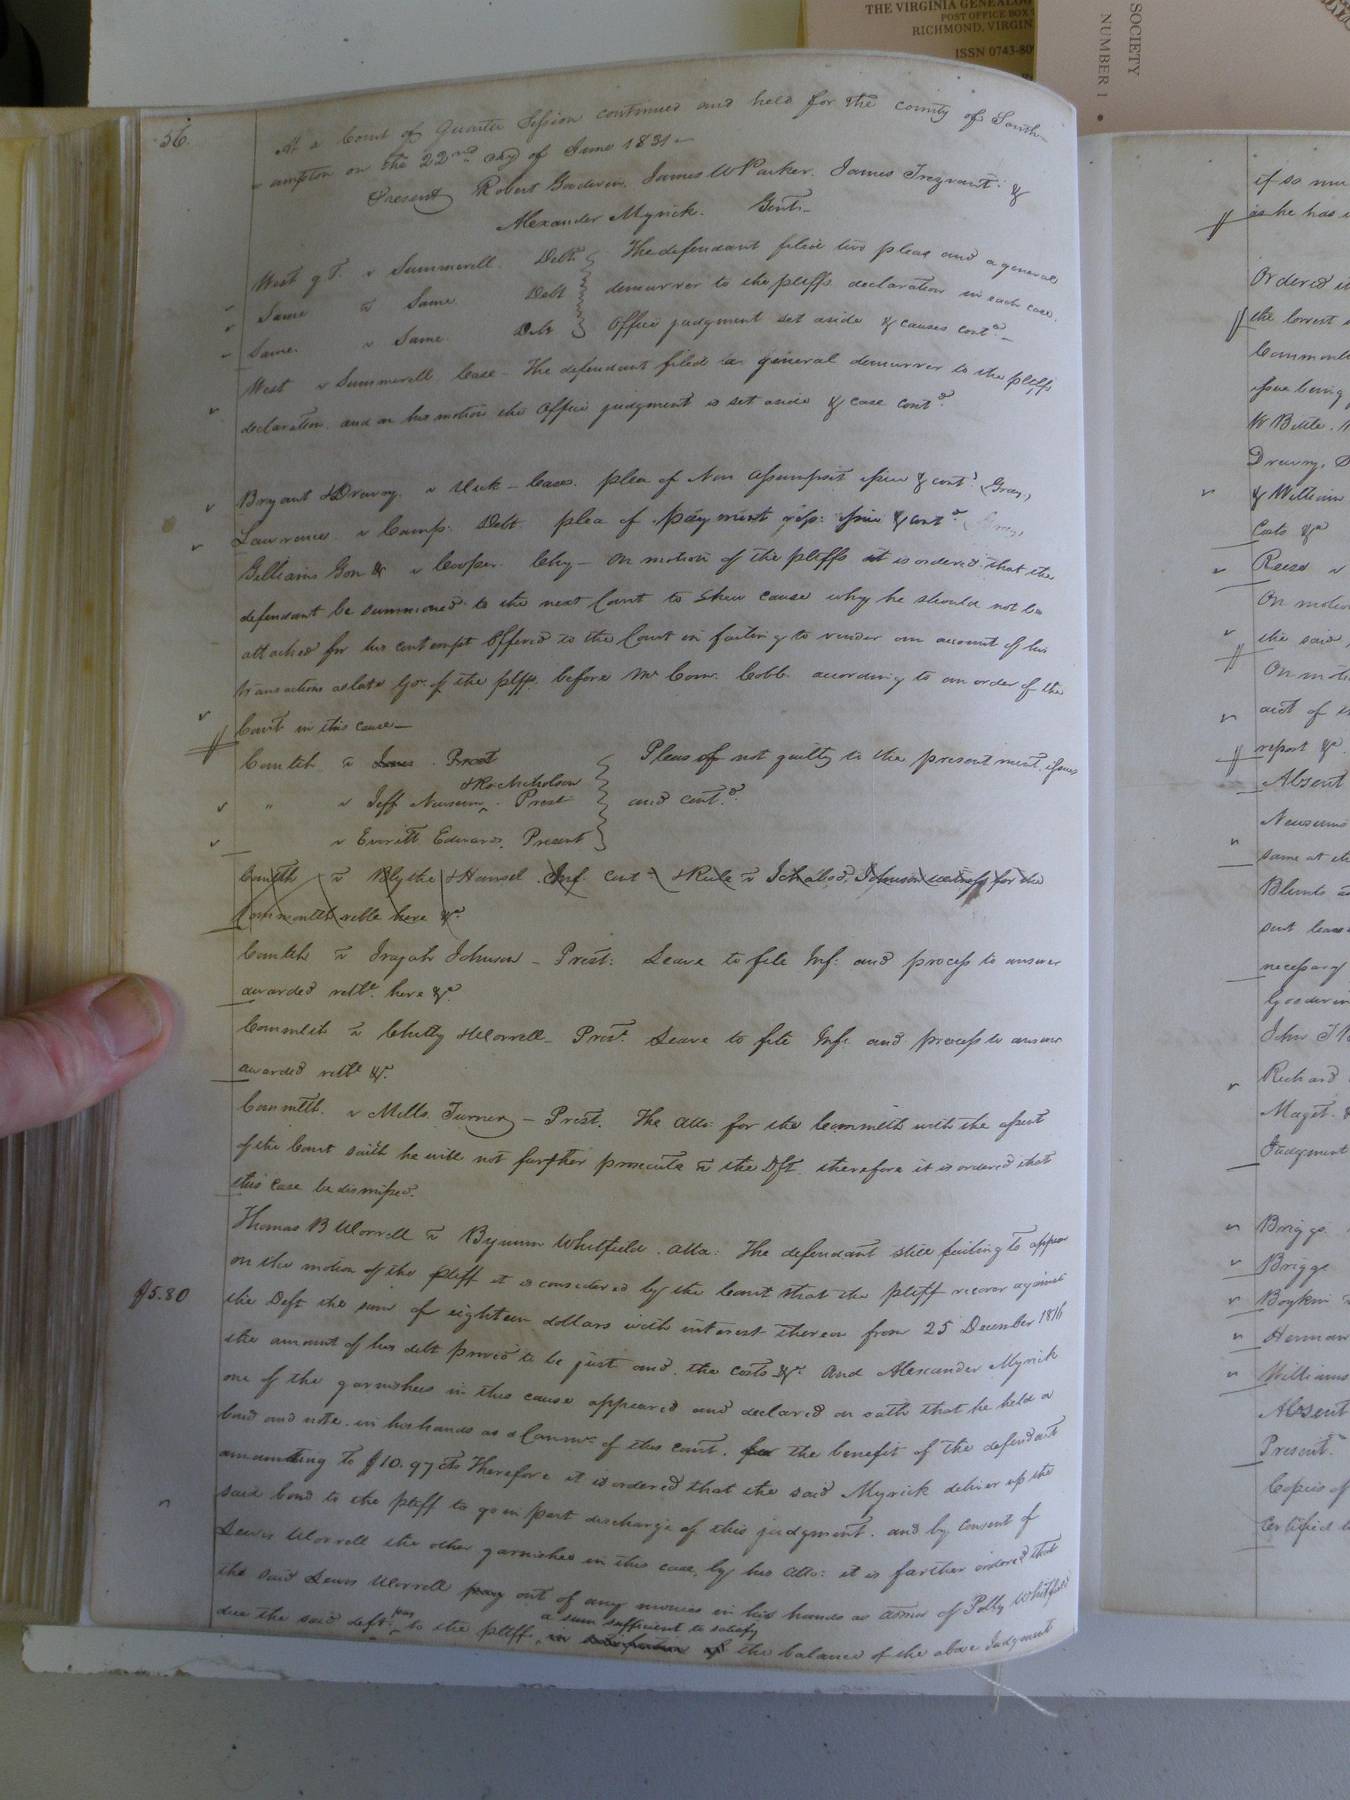 THE VIRGINIA GENEALOG
POST OFFICE BOX
RICHMOND, VIRGIN
ISSN 0743-80
SOCIETY
NUMBER 1
56.
At a Court of Quarter Session continued and held for the county of South-
ampton on the 22nd day of June 1831 -
Present Robert Goodwin, James W Parker, James Trezvant &
Alexander Myrick. Gents -
West g T. v Summerell Debt } The defendant filed two pleas and a general
Same v Same Debt } demurrer to the pltffs declaration in each case.
Same v Same. Debt } Office judgment set aside & causes contd -
West v Summerell Case - The defendant filed a general demurrer to the pltffs
declaration, and on his motion the Office judgment is set aside & case contd
Bryant & Drewry v Vick - Case. plea of Non Assumpsit issue & contd (Gray)
Lawrence v Camp. Debt plea of payment issue & contd
Gilliams Gon & v Cooper. Chy - On motion of the pltffs it is ordered that the
defendant be summoned to the next Court to shew cause why he should not be
attached for his contempt offered to the Court in failing to render an account of his
transactions as late Gon of the pltffs before Mr Comr. Cobb according to an order of the
Court in this cause -
Comlth v Prest } Pleas of not guilty to the presentment, issues
& Ro: Nicholson
" v Jeff Newsum ^ . Prest } and contd.
v Everitt Edwards. Present }
Comlth v Blythe & Hansel Inf cont. & Rule v Ichabod Johnson witness for the
Commonlth retble here &c
Comlth v Johnson - Prest: Leave to file Inf: and process to answer
awarded retble here &c
Commlth v Chitty & Worrell - Prest. Leave to file Inf: and process to answer
awarded retble &c.
Commlth. v Mills Turner - Prest. The Atto: for the Commlth with the assent
of the Court saith he will not further prosecute v the Dft. therefore it is ordered that
this case be dismissed.
Thomas B Worrell v Bynum Whitfield. Atta: The defendant still failing to appear
on the motion of the pltff it is considered by the Court that the pltff recover against
$5.80
the Deft the sum of eighteen dollars with interest thereon from 25 December 1816
the amount of his debt proved to be just and the costs &c. And Alexander Myrick
one of the garnishees in this cause appeared and declared on oath that he held a
bond and note in his hands as Commr of this court, for the benefit of the defendant
amounting to $10.97 cts Therefore it is ordered that the said Myrick deliver up the
said bond to the pltff to go in part discharge of this judgment, and by consent of
Lewis Worrell the other garnishee in this case, by his Atto: it is further ordered that
the said Lewis Worrell pay out of any monies in his hands as admr of Polly Whitfield
due the said deft. ^ pay to the pltff. ^ a sum sufficient to satisfy in satisfaction of the balance of the above Judgment
if so mu
as he has
Ordered
the lowest
Commonlt
issue being
W Bittle.
Drewry,
& William
Costs &c
Reese v
On motion
the said
On moti
acct of
report &c
Absent
Newsums
same at
Blunts
necessary
Goodwin
John T
Richard
Maget. &
Judgment
Briggs
Briggs
Boykin
Herman
Williams
Absent
Present
Copies of
Certified